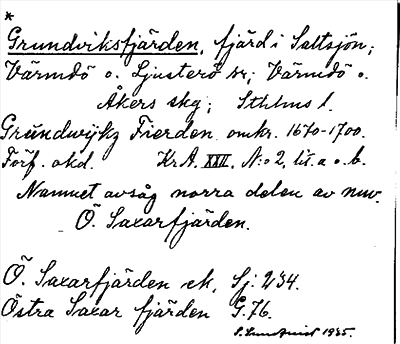 *
Grundviksfjärden, fjärd i Saltsjön;
Värmdö o. Ljusterö sr; Värmdö o.
Åkers skg; Sthlms l.
Grŭndwÿkz Fierden omkr. 1670-1700.
Förf. okd. KrA. XXII. N:o 2, lit. a o. b.
Namnet avsåg norra delen av nuv.
Ö. Saxarfjärden.
Ö. Saxarfjärden ek, Sj. 234.
Östra Saxar fjärden G. 76.
S. Lundquist 1935.